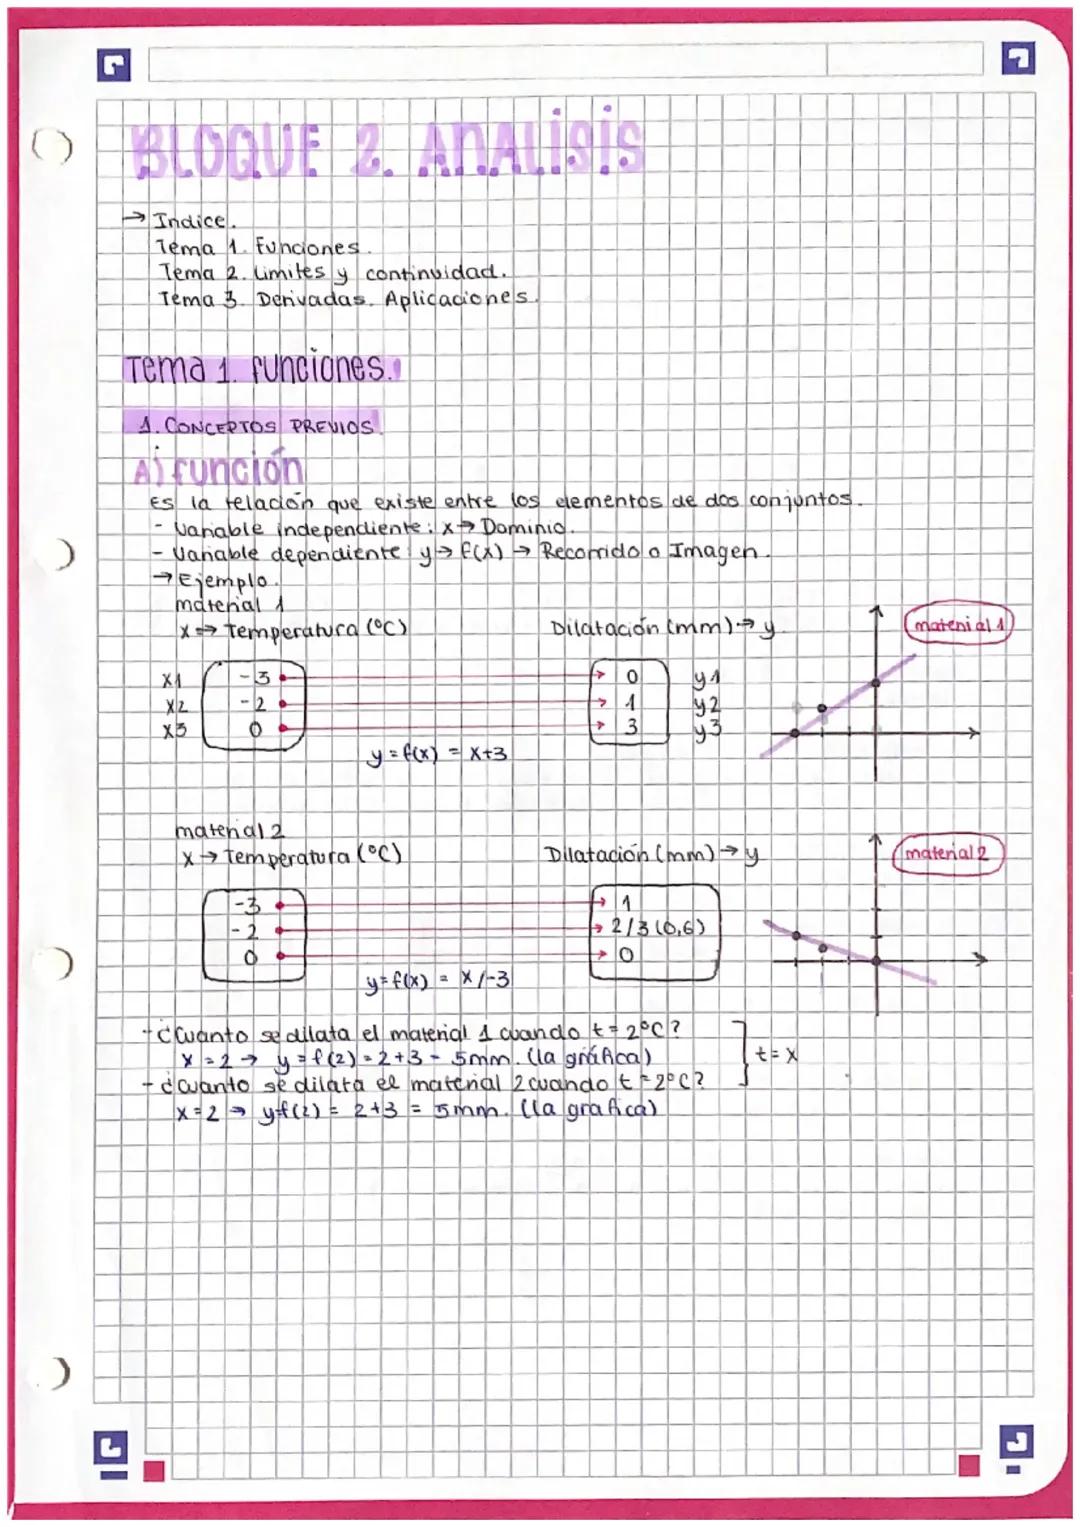 BLOQUE 2. ANALISIS
→ Indice.
Tema 1. Funciones.
Tema 2. Limites y continuidad.
Tema 3. Derivadas. Aplicaciones.
Tema 1. funciones.
1. CONCEPTOS PREVIOS.
A) función
Es la relación que existe entre los elementos de dos conjuntos.
- Variable independiente: x → Dominio.
- Variable dependiente: y → f(x) → Recorrido o Imagen.
→ Ejemplo.
material 1
x → Temperatura (ºC) Dilatación (mm) → y material 1
x1 -3 0 y1
x2 -2 1 y2
x3 0 3 y3
y = f(x) = x+3
material 2
x → Temperatura (ºC) Dilatación (mm) → y material 2
-3 1
-2 2/3 (0,6)
0 0
y = f(x) = x/-3
- ¿Cuanto se dilata el material 1 cuando t = 2ºC?
x = 2 → y = f(2) = 2+3 = 5mm. (la gráfica) t = x
- ¿Cuanto se dilata el material 2 cuando t = 2ºC?
x = 2 → yf(2) = 2+3 = 5mm. (la grafica)